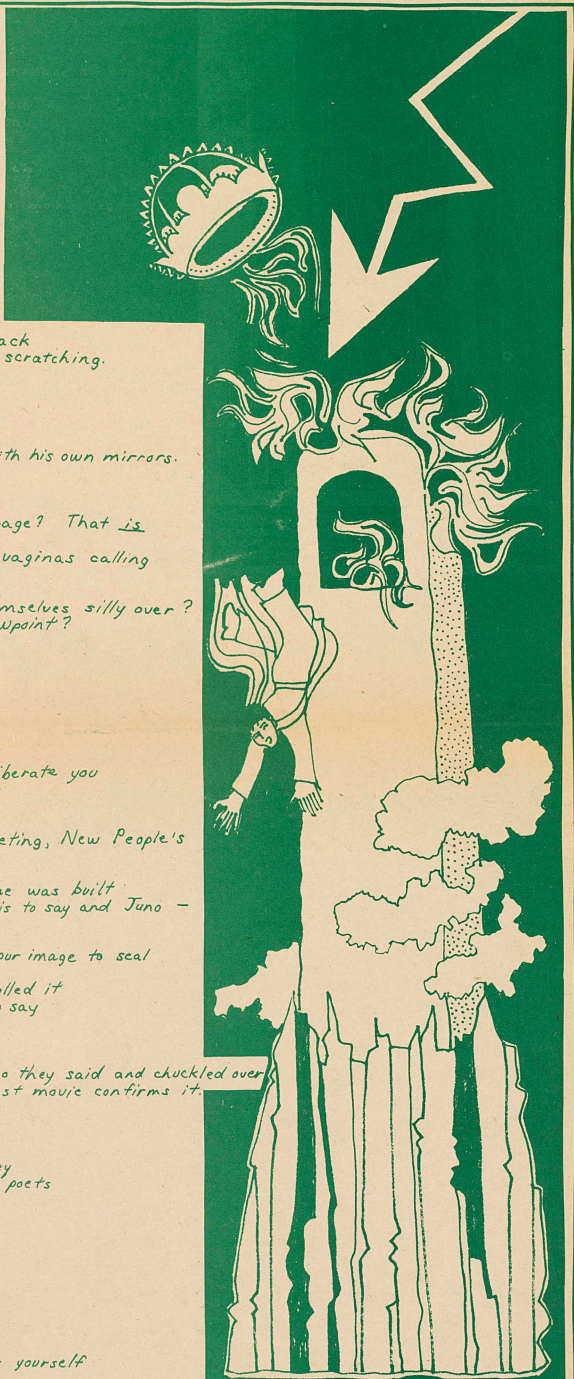 ack
scratching.
th his own mirrors.
age? That is
vaginas calling
mselves silly over?
wpoint?
iberate you
eting, New People's
ne was built
is to say and Juno –
our image to seal
lled it
say
o they said and chuckled over
st movie confirms it.
ey
poets
yourself